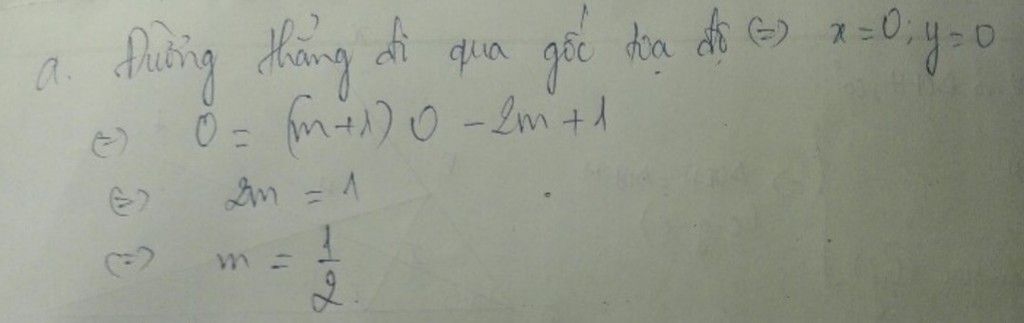 a. Đường thẳng đi qua gốc tọa độ (=) x = 0; y = 0
(=) 0 = (m+1) 0 - 2m + 1
(=) 2m = 1
(=) m = 1/2.